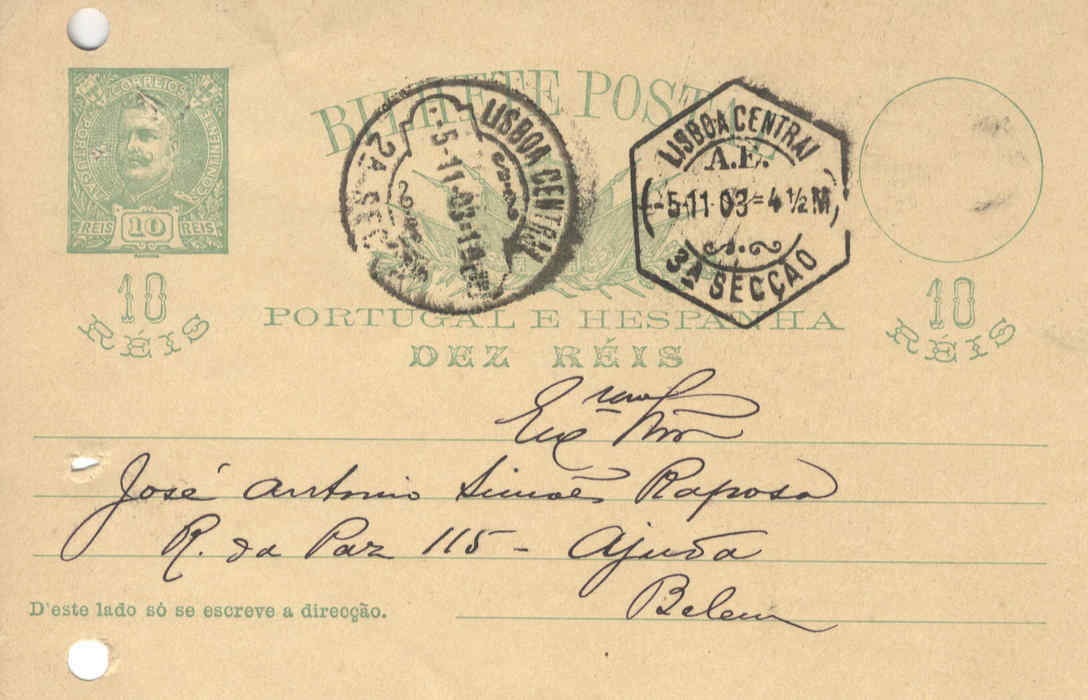 CORREIOS
PORTUGAL
CONTINENTE
REIS 10 REIS
BILHETE POSTAL
LISBOA CENTRAL
5-11-03
2A SEC
LISBOA CENTRAL
A.E.
5-11-03=4½M
3A SECÇÃO
10
RÉIS
10
RÉIS
PORTUGAL E HESPANHA
DEZ RÉIS
Exmo Snr
José Antonio Simões Raposo
R. da Paz 115 - Ajuda
Belem
D'este lado só se escreve a direcção.